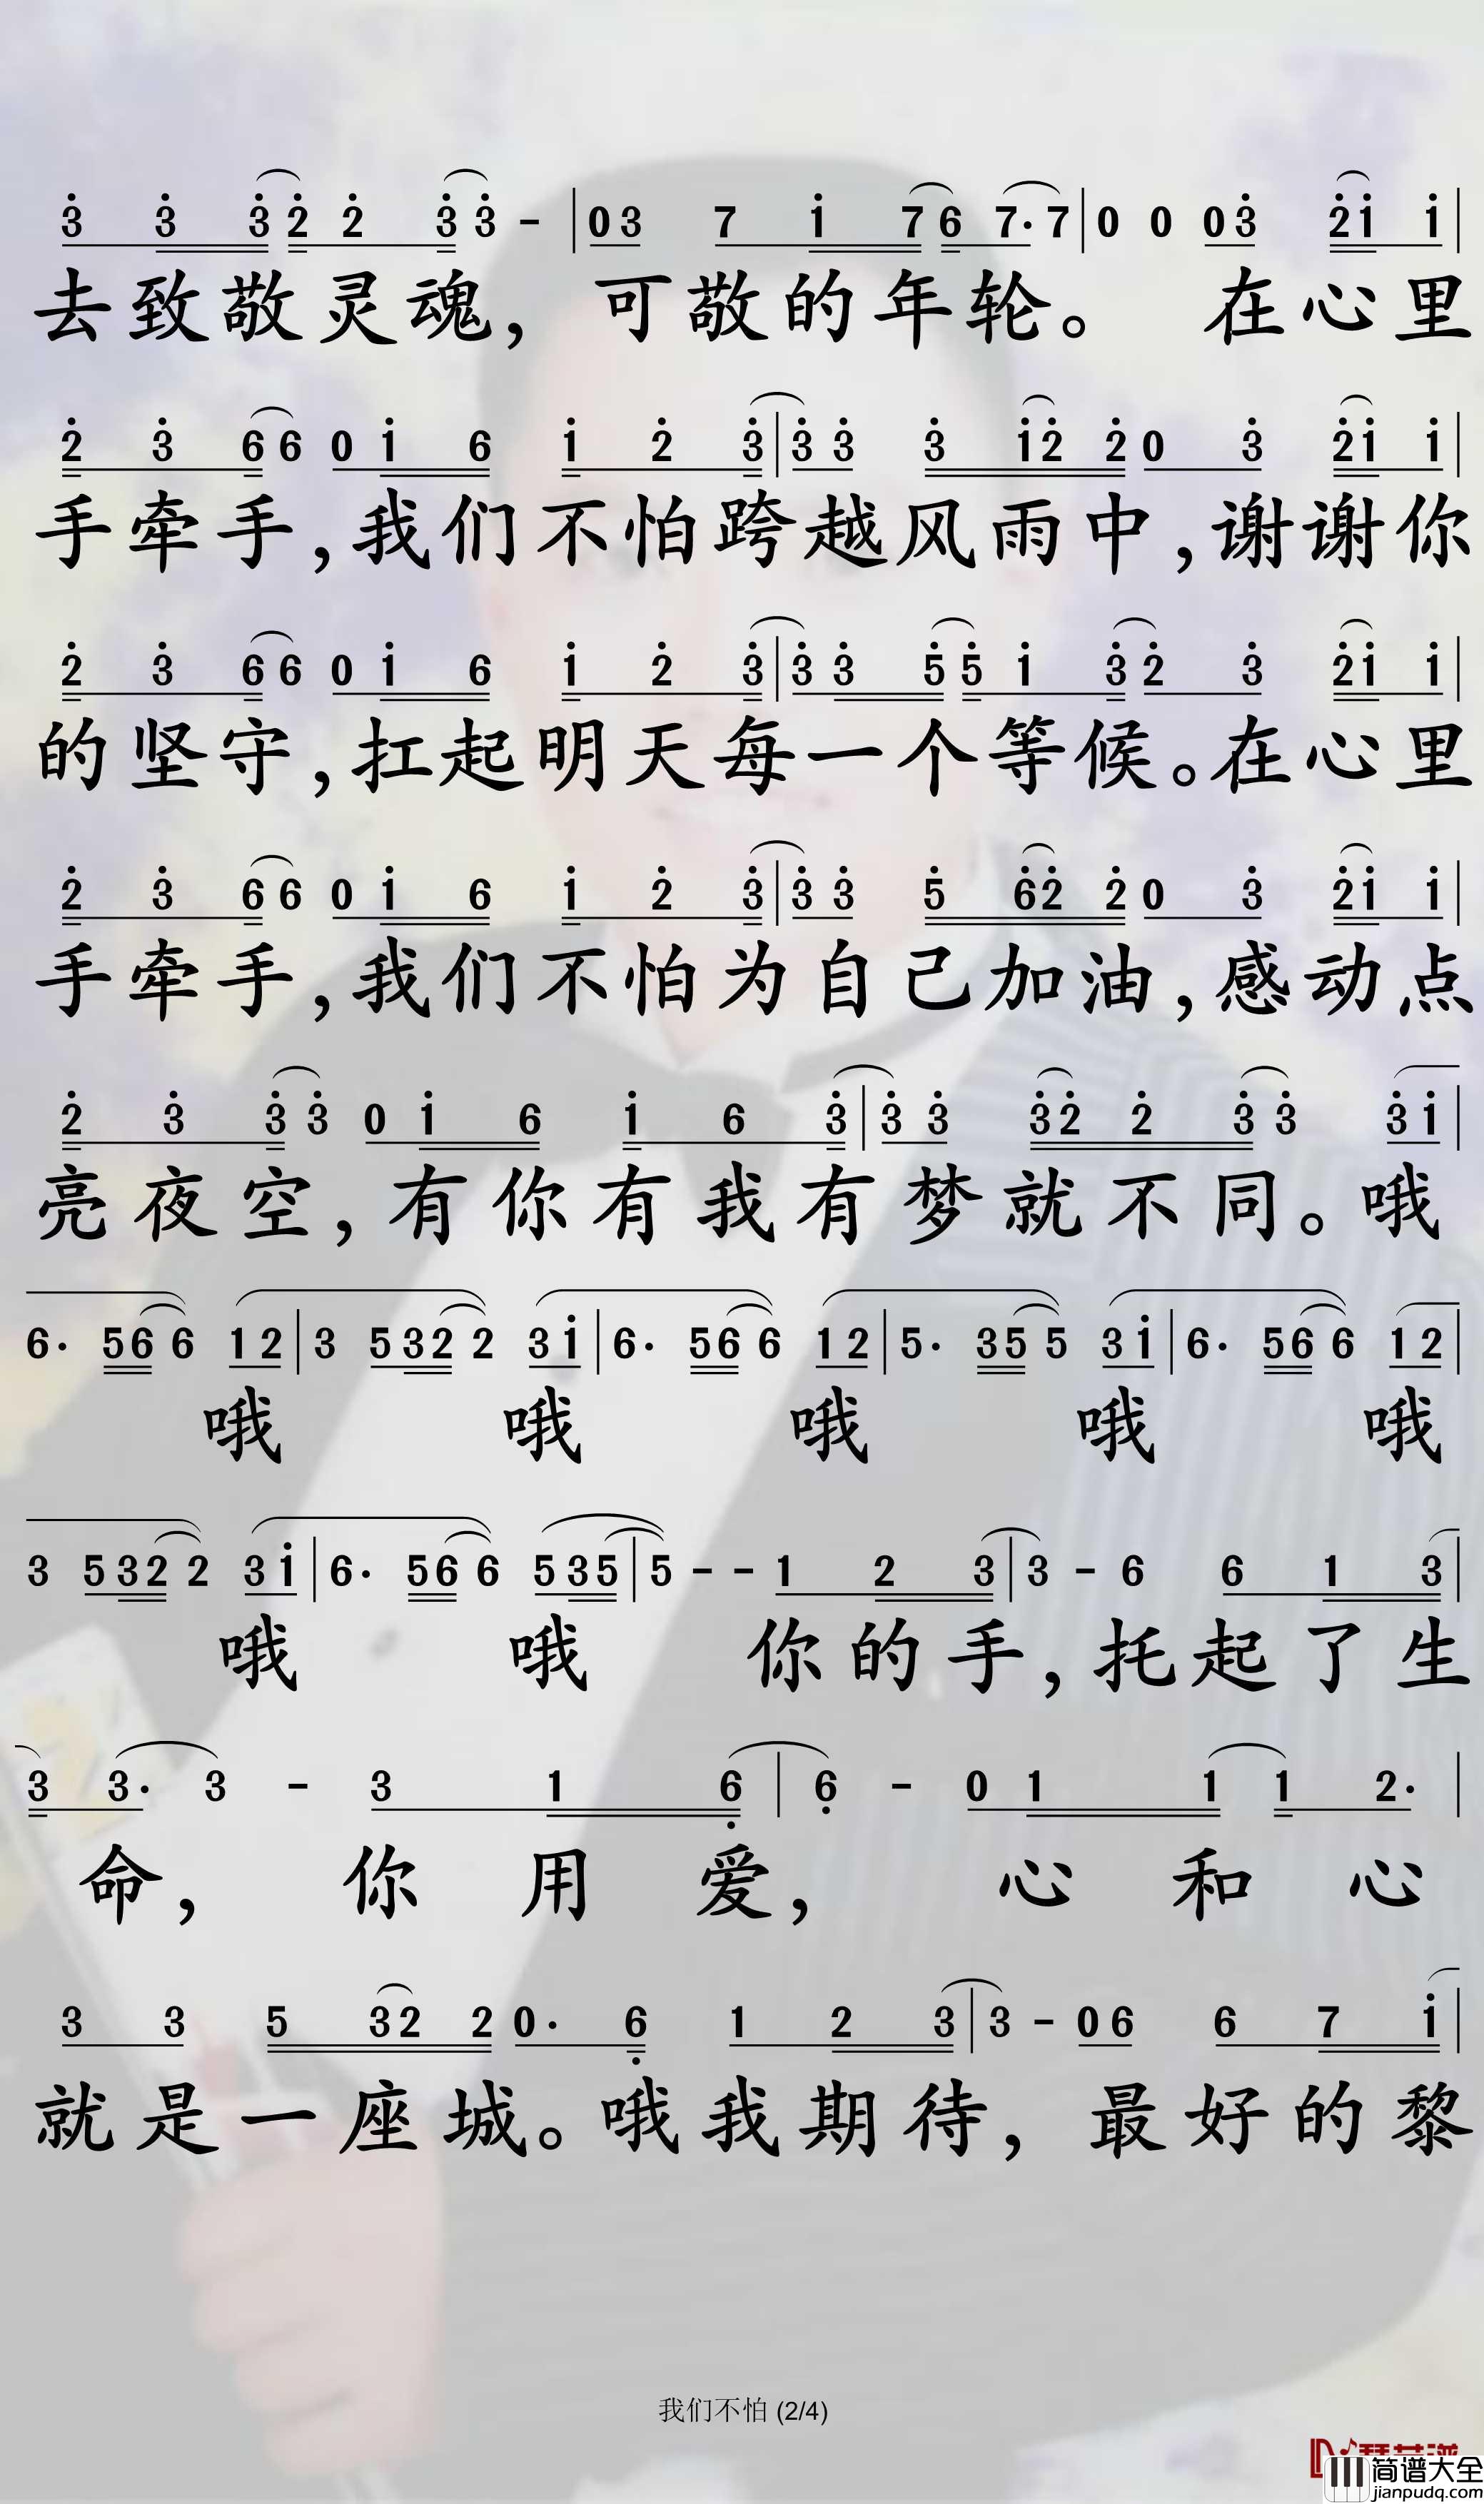 3 3 3 2 2 3 3 - | 0 3 7 1 7 6 7. 7 | 0 0 0 3 2 1 1 |
去致敬灵魂，可敬的年轮。 在心里
2 3 6 6 0 1 6 1 2 3 | 3 3 3 1 2 2 0 3 2 1 1 |
手牵手，我们不怕跨越风雨中，谢谢你
2 3 6 6 0 1 6 1 2 3 | 3 3 5 5 1 3 2 3 2 1 1 |
的坚守，扛起明天每一个等候。在心里
2 3 6 6 0 1 6 1 2 3 | 3 3 5 6 2 2 0 3 2 1 1 |
手牵手，我们不怕为自己加油，感动点
2 3 3 3 0 1 6 1 6 3 | 3 3 3 2 2 3 3 3 1 |
亮夜空，有你有我有梦就不同。哦
6. 5 6 6 1 2 | 3 5 3 2 2 3 1 | 6. 5 6 6 1 2 | 5. 3 5 5 3 1 | 6. 5 6 6 1 2 |
哦 哦 哦 哦 哦
3 5 3 2 2 3 1 | 6. 5 6 6 5 3 5 | 5 - - 1 2 3 | 3 - 6 6 1 3 |
哦 哦 你的手，托起了生
3 3. 3 - 3 1 6 | 6 - 0 1 1 1 2. |
命， 你用爱， 心和心
3 3 5 3 2 2 0. 6 1 2 3 | 3 - 0 6 6 7 1 |
就是一座城。哦我期待，最好的黎
我们不怕 (2/4)
简谱大全
jianpudq.com